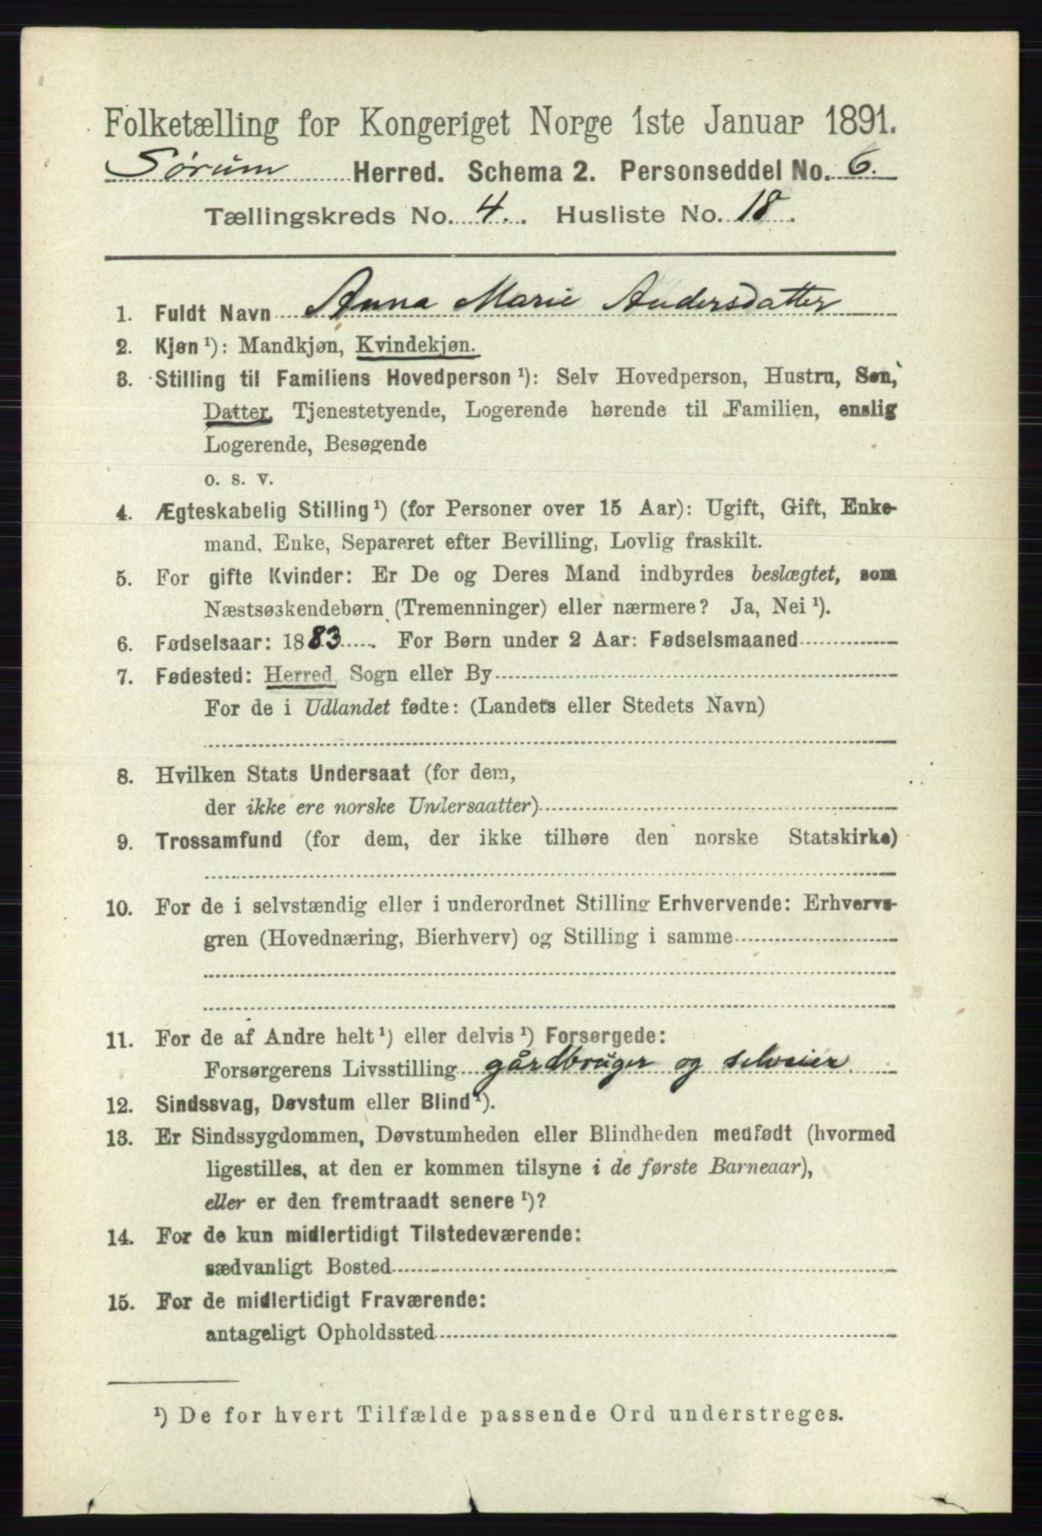 Folketælling for Kongeriget Norge 1ste Januar 1891.
Sørum Herred. Schema 2. Personseddel No. 6.
Tællingskreds No. 4. Husliste No. 18.
1. Fuldt Navn Anna Marie Andersdatter
2. Kjøn ¹): Mandkjøn, Kvindekjøn.
3. Stilling til Familiens Hovedperson ¹): Selv Hovedperson, Hustru, Søn,
Datter, Tjenestetyende, Logerende hørende til Familien, enslig
Logerende, Besøgende
o. s. v.
4. Ægteskabelig Stilling ¹) (for Personer over 15 Aar): Ugift, Gift, Enke-
mand, Enke, Separeret efter Bevilling, Lovlig fraskilt.
5. For gifte Kvinder: Er De og Deres Mand indbyrdes beslægtet, som
Næstsøskendebørn (Tremenninger) eller nærmere? Ja, Nei ¹).
6. Fødselsaar: 1883. For Børn under 2 Aar: Fødselsmaaned
7. Fødested: Herred, Sogn eller By
For de i Udlandet fødte: (Landets eller Stedets Navn)
8. Hvilken Stats Undersaat (for dem,
der ikke ere norske Undersaatter)
9. Trossamfund (for dem, der ikke tilhøre den norske Statskirke)
10. For de i selvstændig eller i underordnet Stilling Erhvervende: Erhvervs-
gren (Hovednæring, Bierhverv) og Stilling i samme
11. For de af Andre helt ¹) eller delvis ¹) Forsørgede:
Forsørgerens Livsstilling gårdbruger og selveier.
12. Sindssvag, Døvstum eller Blind ¹).
13. Er Sindssygdommen, Døvstumheden eller Blindheden medfødt (hvormed
ligestilles, at den er kommen tilsyne i de første Barneaar),
eller er den fremtraadt senere ¹)?
14. For de kun midlertidigt Tilstedeværende:
sædvanligt Bosted
15. For de midlertidigt Fraværende:
antageligt Opholdssted
¹) De for hvert Tilfælde passende Ord understreges.